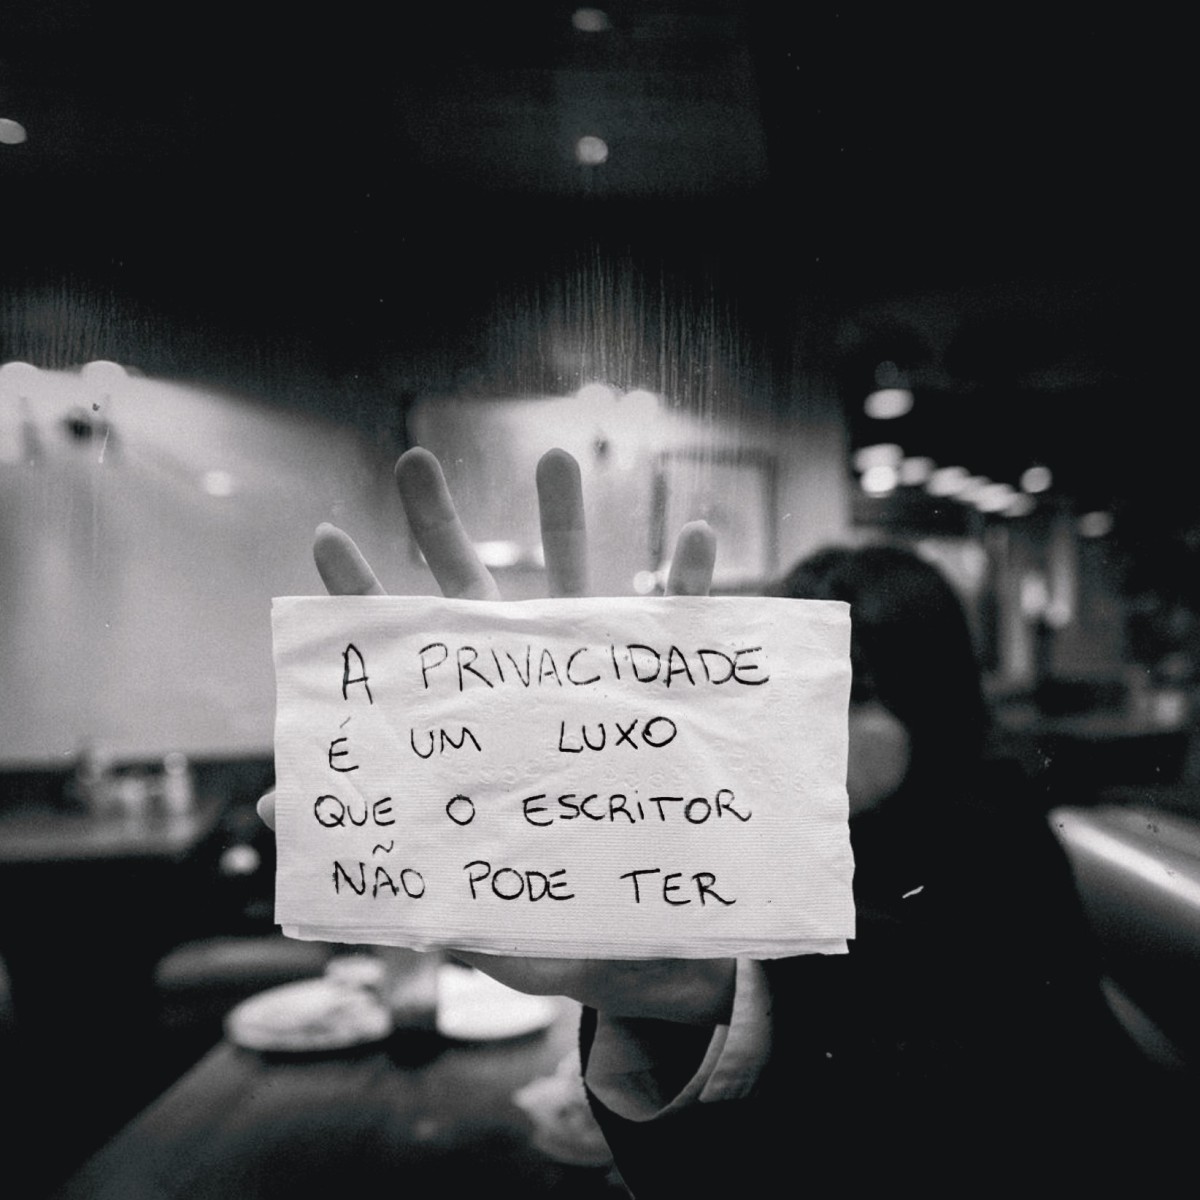 A PRIVACIDADE
É UM LUXO
QUE O ESCRITOR
NÃO PODE TER